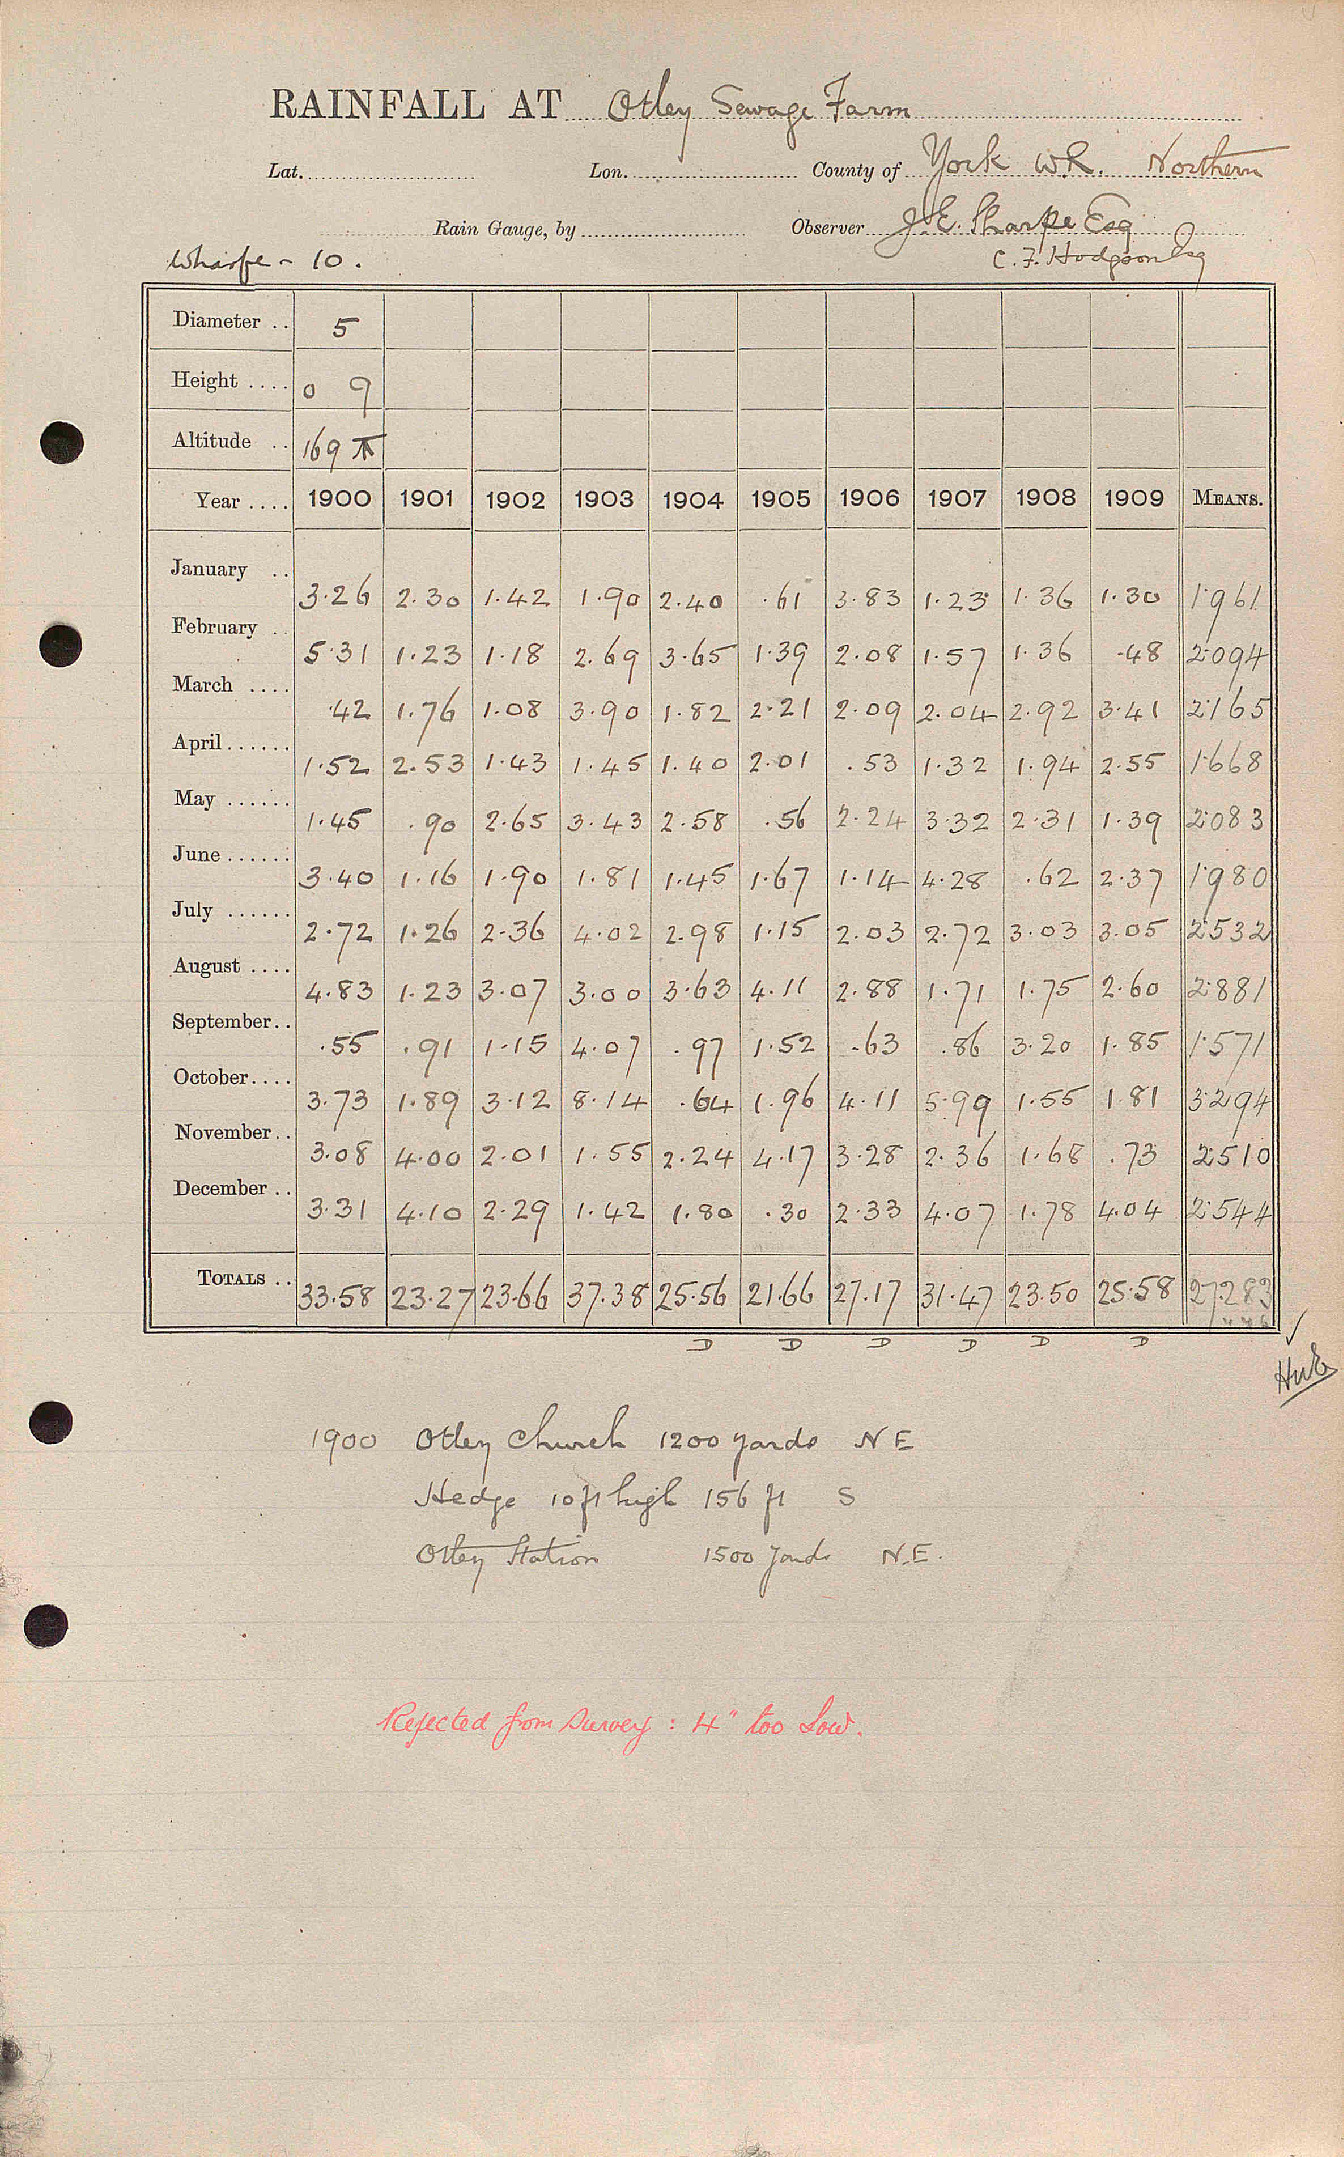 RAINFALL AT Otley Sewage Farm
Lat. Lon. County of York W.R. Northern
Rain Gauge, by Observer J.E. Sharpe Esq
Wharfe - 10. C. F. Hodgson Esq
Diameter .. 5
Height .... 0 9
Altitude .. 169
Year .... 1900 1901 1902 1903 1904 1905 1906 1907 1908 1909 MEANS.
January .. 3.26 2.30 1.42 1.90 2.40 .61 3.83 1.23 1.36 1.30 1.961
February .. 5.31 1.23 1.18 2.69 3.65 1.39 2.08 1.57 1.36 .48 2.094
March .... .42 1.76 1.08 3.90 1.82 2.21 2.09 2.04 2.92 3.41 2.165
April ...... 1.52 2.53 1.43 1.45 1.40 2.01 .53 1.32 1.94 2.55 1.668
May ...... 1.45 .90 2.65 3.43 2.58 .56 2.24 3.32 2.31 1.39 2.083
June ...... 3.40 1.16 1.90 1.81 1.45 1.67 1.14 4.28 .62 2.37 1.980
July ...... 2.72 1.26 2.36 4.02 2.98 1.15 2.03 2.72 3.03 3.05 2.532
August .... 4.83 1.23 3.07 3.00 3.63 4.11 2.88 1.71 1.75 2.60 2.881
September.. .55 .91 1.15 4.07 .97 1.52 .63 .86 3.20 1.85 1.571
October.... 3.73 1.89 3.12 8.14 .64 1.96 4.11 5.99 1.55 1.81 3.294
November.. 3.08 4.00 2.01 1.55 2.24 4.17 3.28 2.36 1.68 .73 2.510
December .. 3.31 4.10 2.29 1.42 1.80 .30 2.33 4.07 1.78 4.04 2.544
TOTALS .. 33.58 23.27 23.66 37.38 25.56 21.66 27.17 31.47 23.50 25.58 27.283
D D D D D D
1900 Otley Church 1200 yards N E
Hedge 10 ft high 156 ft S
Otley Station 1500 yards N.E.
Rejected from Survey : 4" too low.